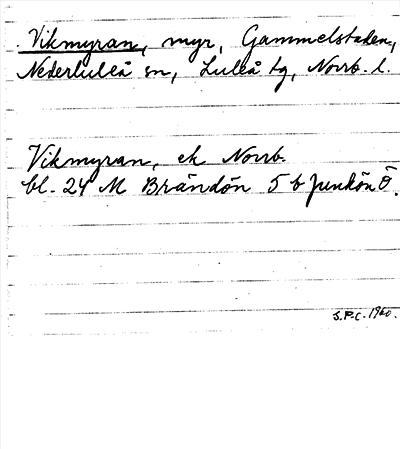 Vikmyran, myr, Gammelstaden,
Nederluleå sn, Luleå tg, Norrb. l.
Vikmyran, ek Norrb.
bl. 24 M Brändön 5 b Junkön Ö.
S.P.C. 1960.